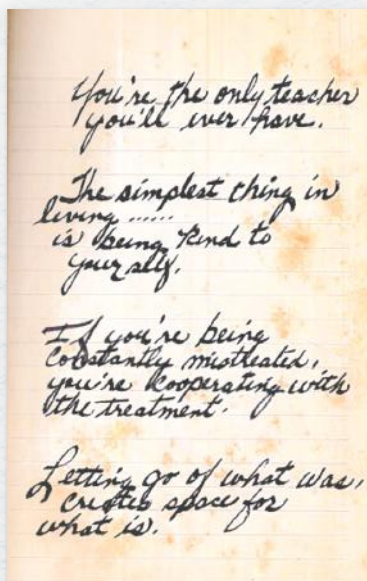 You're the only teacher
you'll ever have.
The simplest thing in
living ......
is being kind to
yourself.
If you're being
constantly mistreated,
you're cooperating with
the treatment.
Letting go of what was,
creates space for
what is.